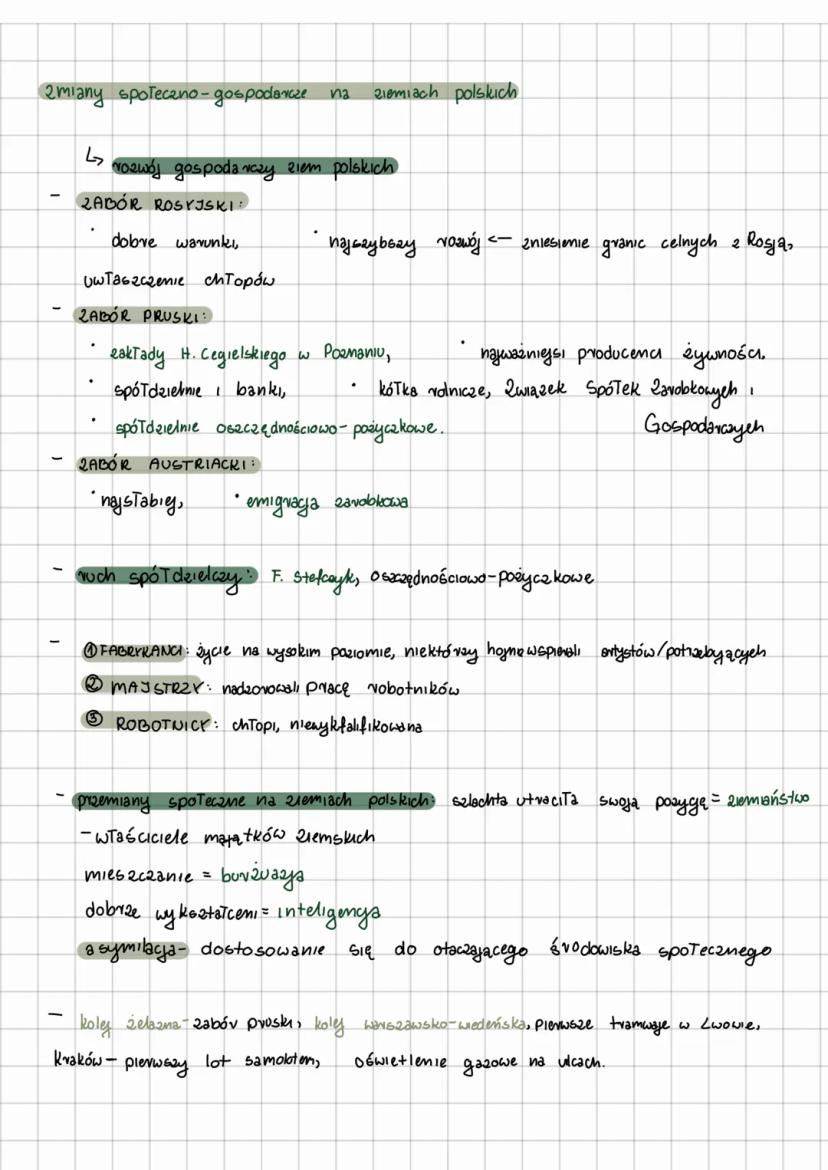 zmiany społeczno-gospodarcze na ziemiach polskich
↳ rozwój gospodarczy ziem polskich
- ZABÓR ROSYJSKI:
· dobre warunki, · najszybszy rozwój <— zniesienie granic celnych z Rosją,
uwłaszczenie chłopów
- ZABÓR PRUSKI:
· zakłady H. Cegielskiego w Poznaniu, · najważniejsi producenci żywności.
· spółdzielnie i banki, · kółka rolnicze, Związek Spółek Zarobkowych i
· spółdzielnie oszczędnościowo-pożyczkowe. Gospodarczych
- ZABÓR AUSTRIACKI:
· najsłabiej, · emigracja zarobkowa
- ruch spółdzielczy: F. Stefczyk, oszczędnościowo-pożyczkowe
- ① FABRYKANCI: życie na wysokim poziomie, niektórzy hojnie wspierali artystów/potrzebujących
② MAJSTRZY: nadzorowali pracę robotników
③ ROBOTNICY: chłopi, niewykfalifikowana
- przemiany społeczne na ziemiach polskich: szlachta utraciła swoją pozycję = ziemiaństwo
- właściciele majątków ziemskich
mieszczanie = burżuazja
dobrze wykształceni = inteligencja
asymilacja- dostosowanie się do otaczającego środowiska społecznego
- kolej żelazna- zabór pruski, kolej warszawsko-wiedeńska, pierwsze tramwaje w Lwowie,
Kraków- pierwszy lot samolotem, oświetlenie gazowe na ulicach.